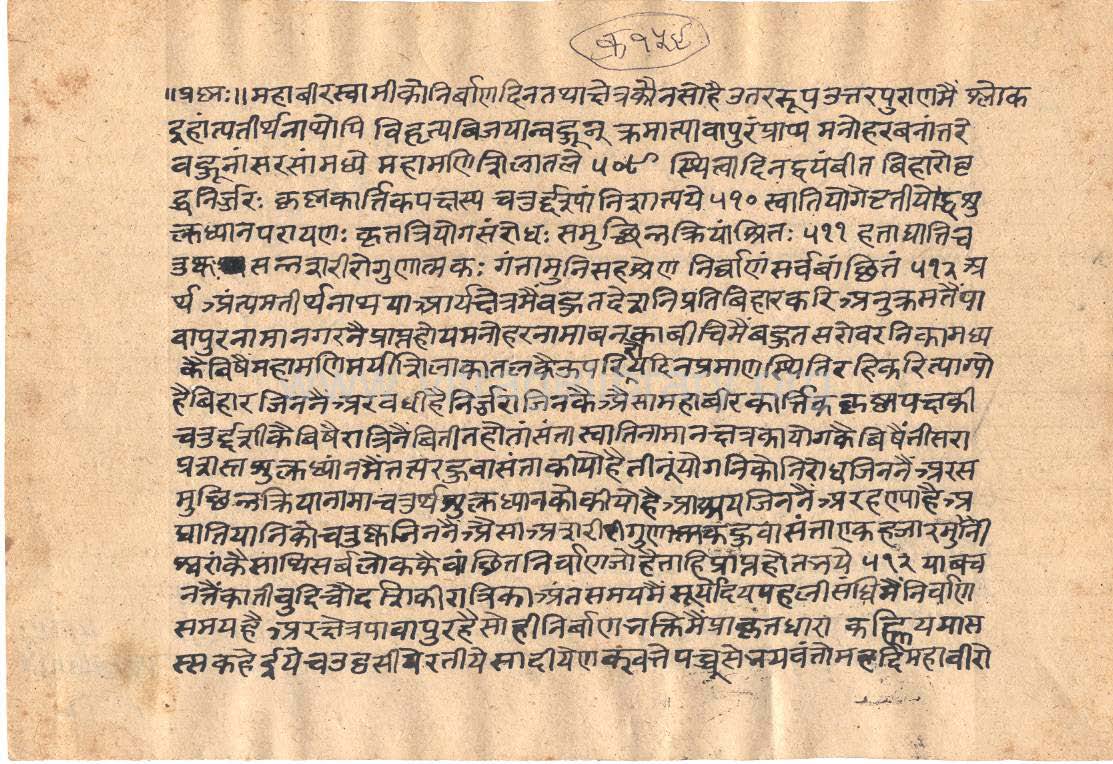 क १५६
॥प्रश्नः॥ महाबीरस्वामीकोनिर्बाणदिनतथाक्षेत्रकौनसोहै उतररूपउत्तरपुराणमैं श्लोक
इहांत्पतीर्थनाथोपि विहृत्यबिजयान्वहून् क्रमात्पावापुरंप्राप्य मनोहरबनांतरे
वहूनांसरसांमध्ये महामणिशिलातले ५०९ स्थित्वादिनद्वयंबीत बिहारोवृ
द्धनिर्जरः कृष्णकार्त्तिकपक्षस्य चतुर्द्दश्यांनिशात्यये ५१० स्वातियोगेतृतीयोद्धशु
क्लध्यानपरायणः कृतत्रियोगसंरोधः समुछिन्नक्रियांश्रितः ५११ हताघातिच
तुष्कः सन्नशरीरोगुणात्मकः गंतामुनिसहश्रेण निर्वाणंसर्वबांछितं ५१२ अ
र्थ अंत्यमतीर्थनाथयाआर्यक्षेत्रमैंवहुतदेशनिप्रतिबिहारकरिअनुक्रमतैंपा
वापुरनामानगरनैप्राप्तहोयमनोहरनामाबनकाबीचिमैंबहुतसरोवरनिकामध्य
कैबिषैमहामणिमयीशिलाकातलकैऊपरिदोयदिनप्रमाणस्थितिरहिकरित्याग्यो
हैबिहारजिननैअरवधीहैनिर्जराजिनकैऐसामहाबीरकार्त्तिककृष्णपक्षकी
चतुर्द्दशीकैबिषैरात्रिनैंबितीतहोतांसंतास्वातिनामानक्षत्रकायोगकैबिषैंतीसरा
प्रशस्तशुक्लध्यांनमैंतत्परहुवासंताकीयोहैतीनूंयोगनिकोनिरोधजिननैंअरस
मुछिन्नक्रियानामाचतुर्थशुक्लध्यानकौकीयोहैआश्रयजिननैअरहण्याहैअ
घातियानिकोचतुष्कजिननैंऐसाअशरीरीगुणात्मकहुवासंताएकहजारमुनी
श्वरांकैसाथिसर्बलोककैबांछितनिर्वाणजोहैताहिप्राप्तहोतभये ५१२ याबच
नतैंकातीबुदिचौदशिकीरात्रिकाअंतसमयमैंसूर्योदयपहलीसंधिमैंनिर्वाण
समयहैअरक्षेत्रपावापुरहैसोहीनिर्बाणभक्तिमैंप्राकृतधारा कत्तियमास
स्सकहेईयेचउद्दसी